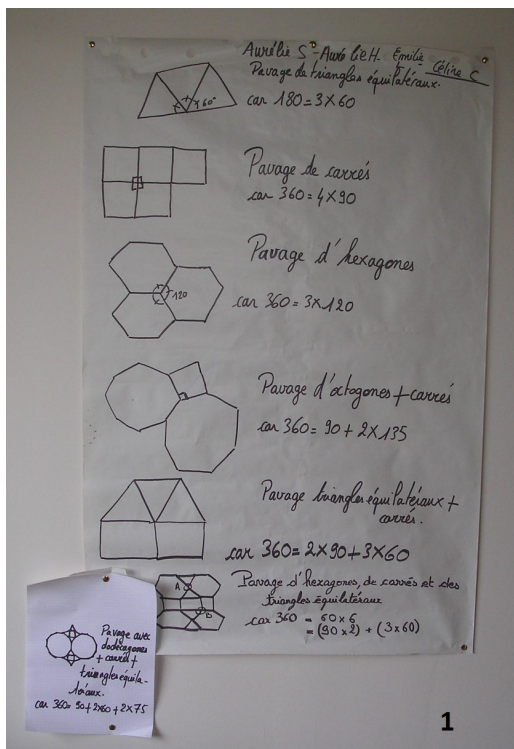 Aurélie S - Aurélie H. Emilie Céline C
Pavage de triangles équilatéraux.
car 180 = 3 x 60
60°
Pavage de carrés
car 360 = 4 x 90
Pavage d'hexagones
120
car 360 = 3 x 120
Pavage d'octogones + carrés
car 360 = 90 + 2 x 135
Pavage triangles équilatéraux +
carrés.
car 360 = 2 x 90 + 3 x 60
Pavage d'hexagones, de carrés et des
triangles équilatéraux
A
B
car 360 = 60 x 6
= (90 x 2) + (3 x 60)
Pavage avec
dodécagones
+ carrés +
triangles équila-
téraux.
car 360 = 90 + 2x60 + 2 x 75
1